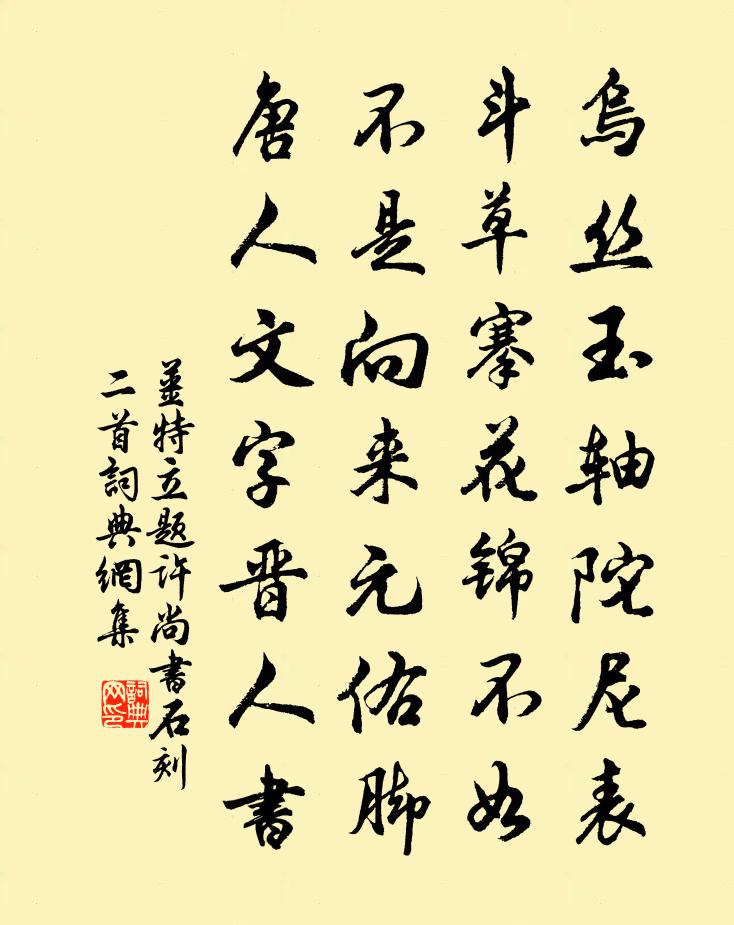 烏丝玉轴陀尼表
斗草搴花锦不如
不是向来元佑脚
唐人文字晋人書
薑特立题许尚書石刻
二首詞典網集
詞典网印